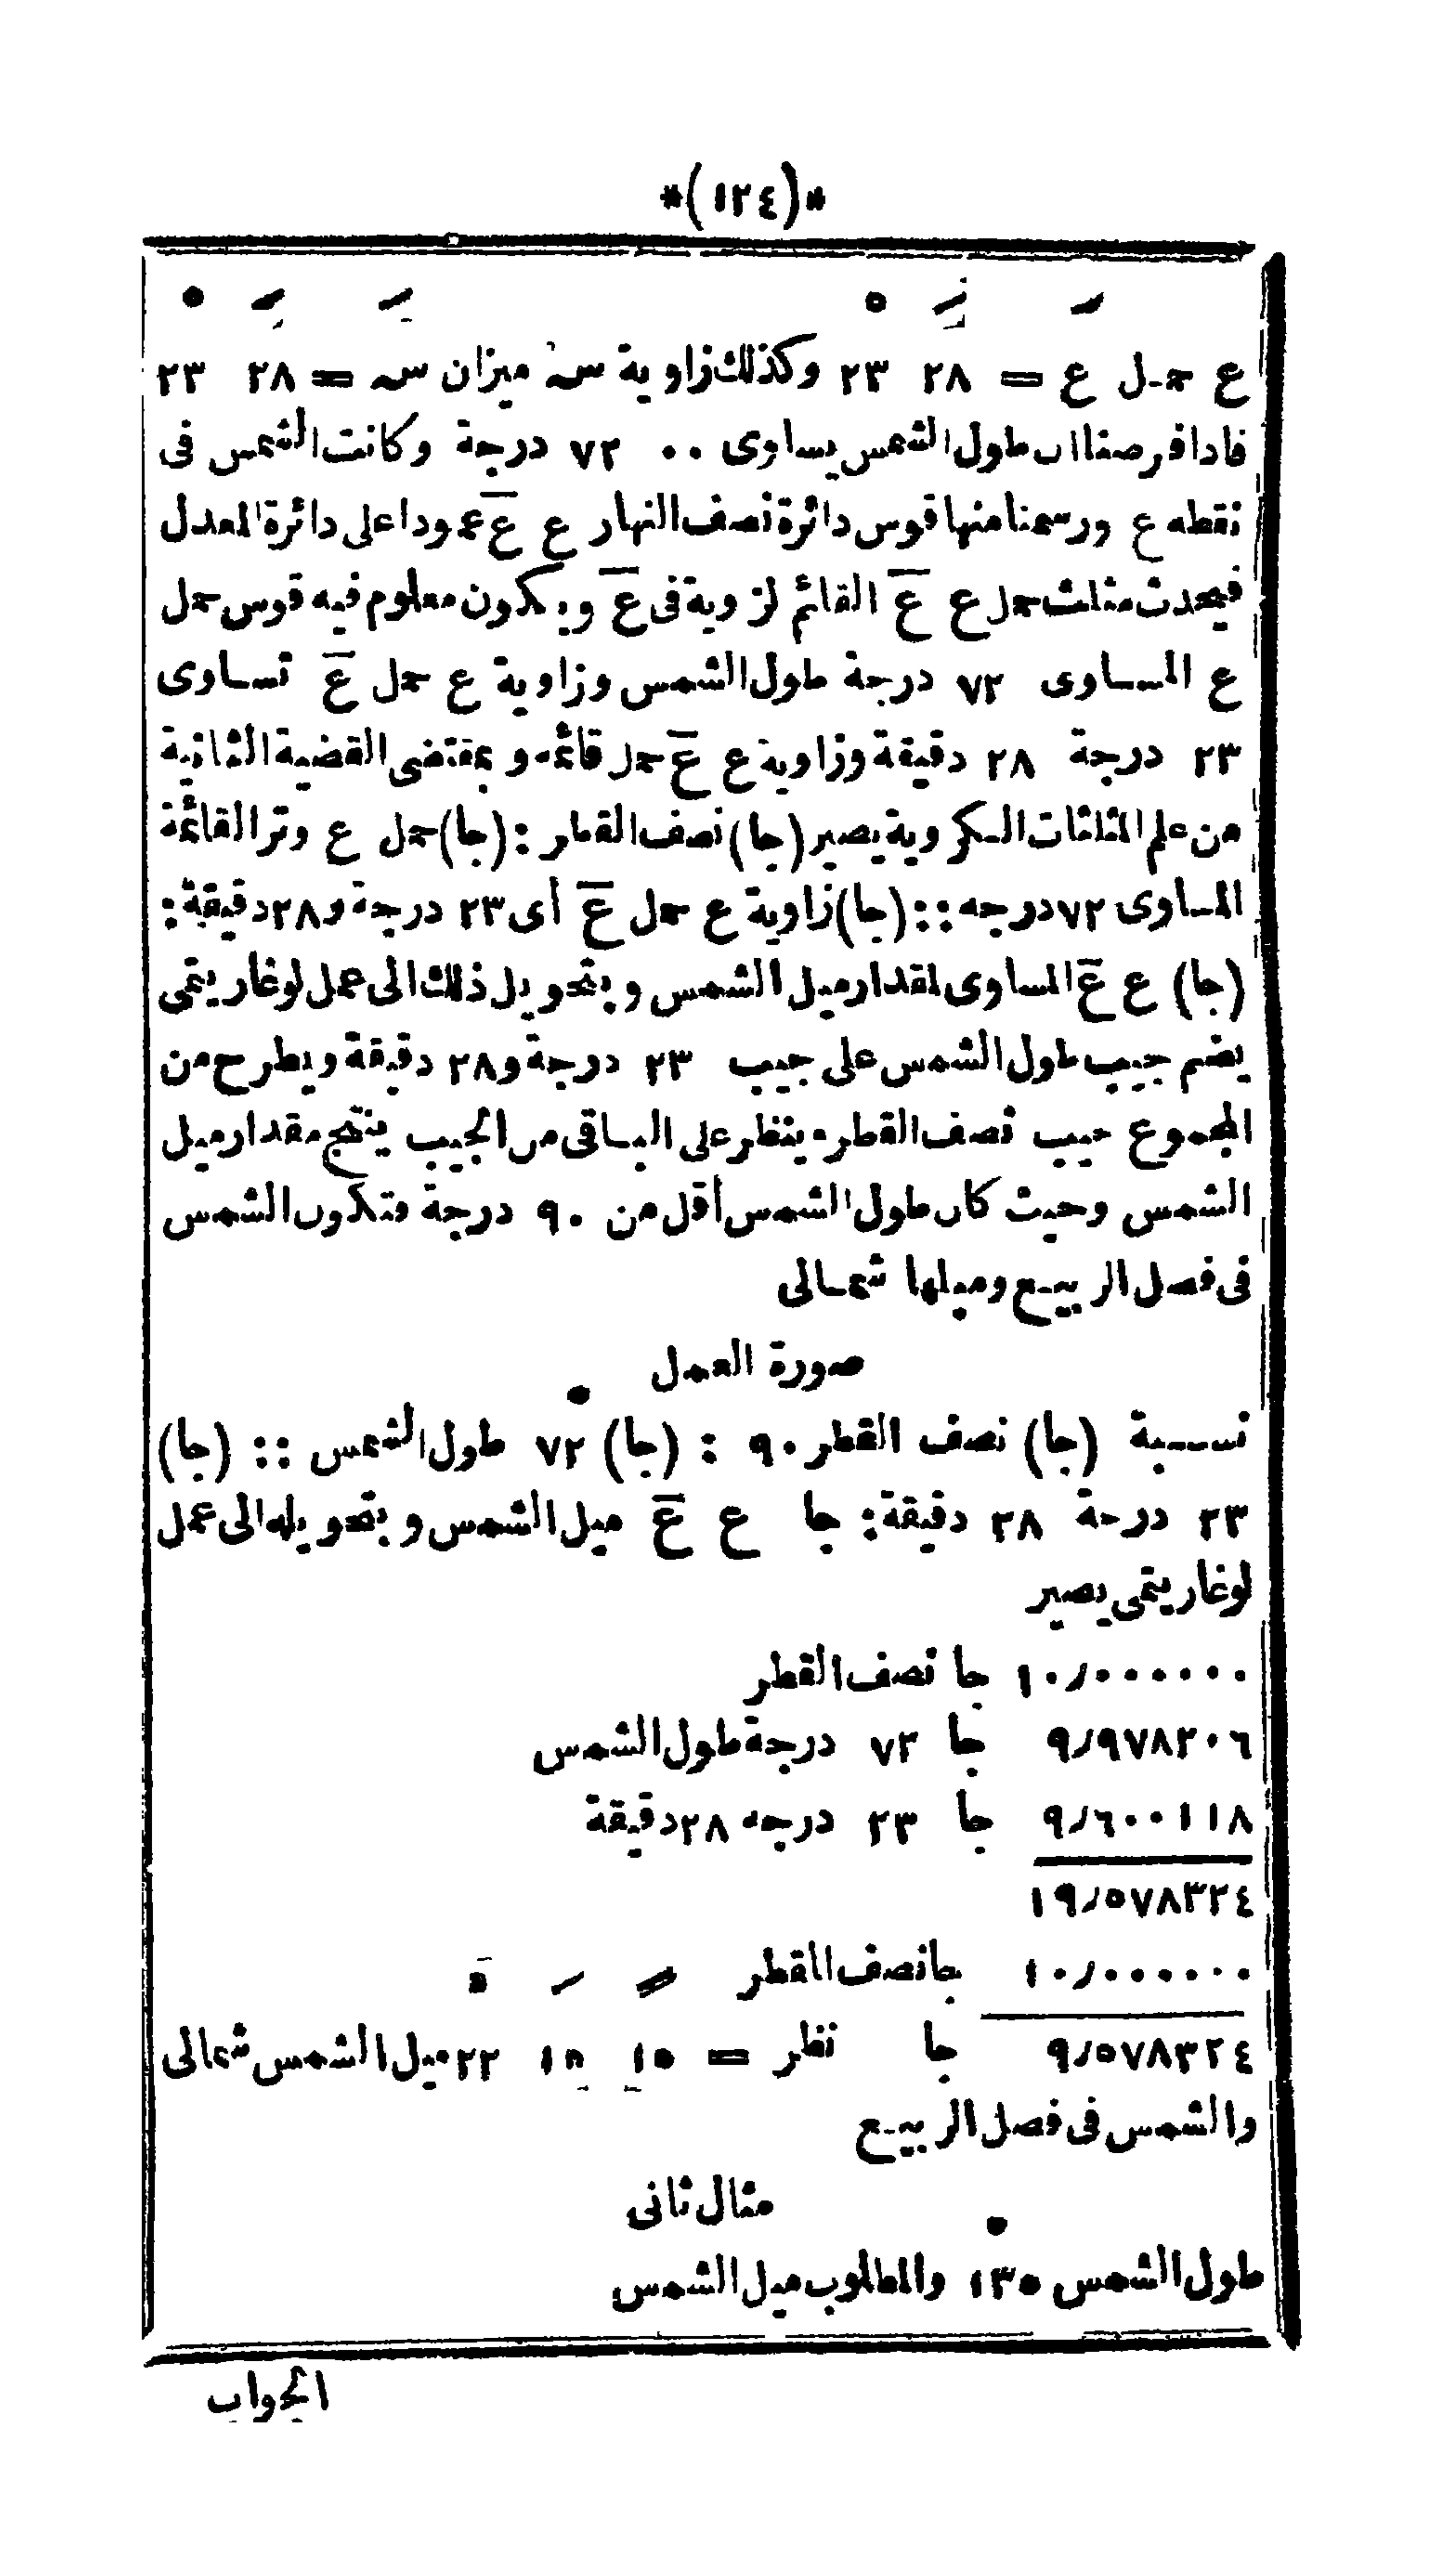 *(١٢٤)*
ع حمل ع = ٢٨ ٢٣ وكذلك زاوية سـ ميزان سـ = ٢٨ ٢٣
فاذا فرضنا ان طول الشمس يساوى ٠٠ ٧٢ درجة وكانت الشمس فى
نقطه ع ورسمنا منها قوس دائرة نصف النهار ع عَ عمودا على دائرة المعدل
فيحدث مثلث حمل ع عَ القائم لزوية فى عَ ويكون معلوم فيه قوس حمل
ع المساوى ٧٢ درجة طول الشمس وزاوية ع حمل عَ تساوى
٢٣ درجة ٢٨ دقيقة وزاوية ع عَ حمل قائمه وبمقتضى القضية الثانية
من علم المثلثات الكروية يصير (جا) نصف القطر : (جا) حمل ع وتر القائمة
المساوى ٧٢ درجه :: (جا) زاوية ع حمل عَ أى ٢٣ درجة و ٢٨ دقيقة :
(جا) ع عَ المساوى لمقدار ميل الشمس وبتحويل ذلك الى عمل لوغاريتمى
يضم جيب طول الشمس على جيب ٢٣ درجة و ٢٨ دقيقة ويطرح من
المجموع جيب نصف القطر وينظر على الباقى من الجيب ينتج مقدار ميل
الشمس وحيث كان طول الشمس أقل من ٩٠ درجة فتكون الشمس
فى فصل الربيع وميلها شمالى
صورة العمل
نسبة (جا) نصف القطر ٩٠ : (جا) ٧٢ طول الشمس :: (جا)
٢٣ درجة ٢٨ دقيقة : جا ع عَ ميل الشمس وبتحويله الى عمل
لوغاريتمى يصير
١٠٫٠٠٠٠٠٠ جا نصف القطر
٩٫٩٧٨٢٠٦ جا ٧٢ درجة طول الشمس
٩٫٦٠٠١١٨ جا ٢٣ درجه ٢٨ دقيقة
١٩٫٥٧٨٣٢٤
١٠٫٠٠٠٠٠٠ جا نصف القطر
٩٫٥٧٨٣٢٤ جا نظر = ١٥ ١٥ ٢٢ ميل الشمس شمالى
والشمس فى فصل الربيع
مثال ثانى
طول الشمس ١٣٥ والمطلوب ميل الشمس
الجواب